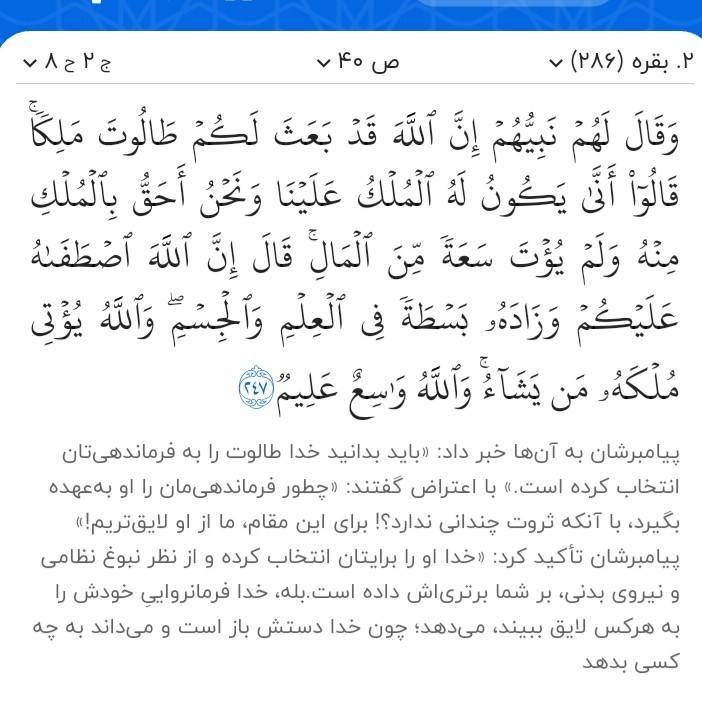 ۲. بقره (۲۸۶)
ص ۴۰
ج ۲ ح ۸
وَقَالَ لَهُمْ نَبِيُّهُمْ إِنَّ ٱللَّهَ قَدْ بَعَثَ لَكُمْ طَالُوتَ مَلِكًاۚ
قَالُوٓاْ أَنَّىٰ يَكُونُ لَهُ ٱلْمُلْكُ عَلَيْنَا وَنَحْنُ أَحَقُّ بِٱلْمُلْكِ
مِنْهُ وَلَمْ يُؤْتَ سَعَةً مِّنَ ٱلْمَالِۚ قَالَ إِنَّ ٱللَّهَ ٱصْطَفَىٰهُ
عَلَيْكُمْ وَزَادَهُۥ بَسْطَةً فِى ٱلْعِلْمِ وَٱلْجِسْمِۖ وَٱللَّهُ يُؤْتِى
مُلْكَهُۥ مَن يَشَآءُۚ وَٱللَّهُ وَٰسِعٌ عَلِيمٌ ۲۴۷
پیامبرشان به آن‌ها خبر داد: «باید بدانید خدا طالوت را به فرماندهی‌تان
انتخاب کرده است.» با اعتراض گفتند: «چطور فرماندهی‌مان را او به‌عهده
بگیرد، با آنکه ثروت چندانی ندارد؟! برای این مقام، ما از او لایق‌تریم!»
پیامبرشان تأکید کرد: «خدا او را برایتان انتخاب کرده و از نظر نبوغ نظامی
و نیروی بدنی، بر شما برتری‌اش داده است.بله، خدا فرمانرواییِ خودش را
به هرکس لایق ببیند، می‌دهد؛ چون خدا دستش باز است و می‌داند به چه
کسی بدهد